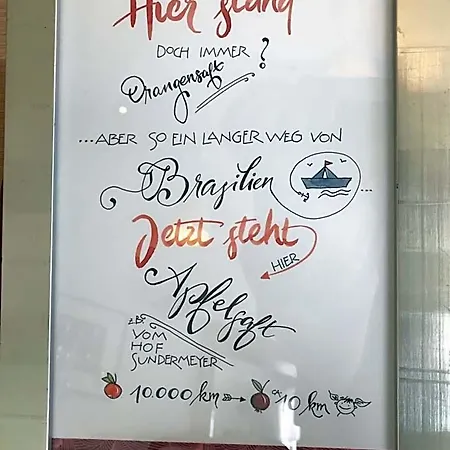 Hier stand
DOCH IMMER ?
Orangensaft
...ABER SO EIN LANGER WEG VON
Brasilien ...
Jetzt steht
HIER
Apfelsaft
z.B.
VOM
HOF
SUNDERMEYER
10.000 km → ca 10 km